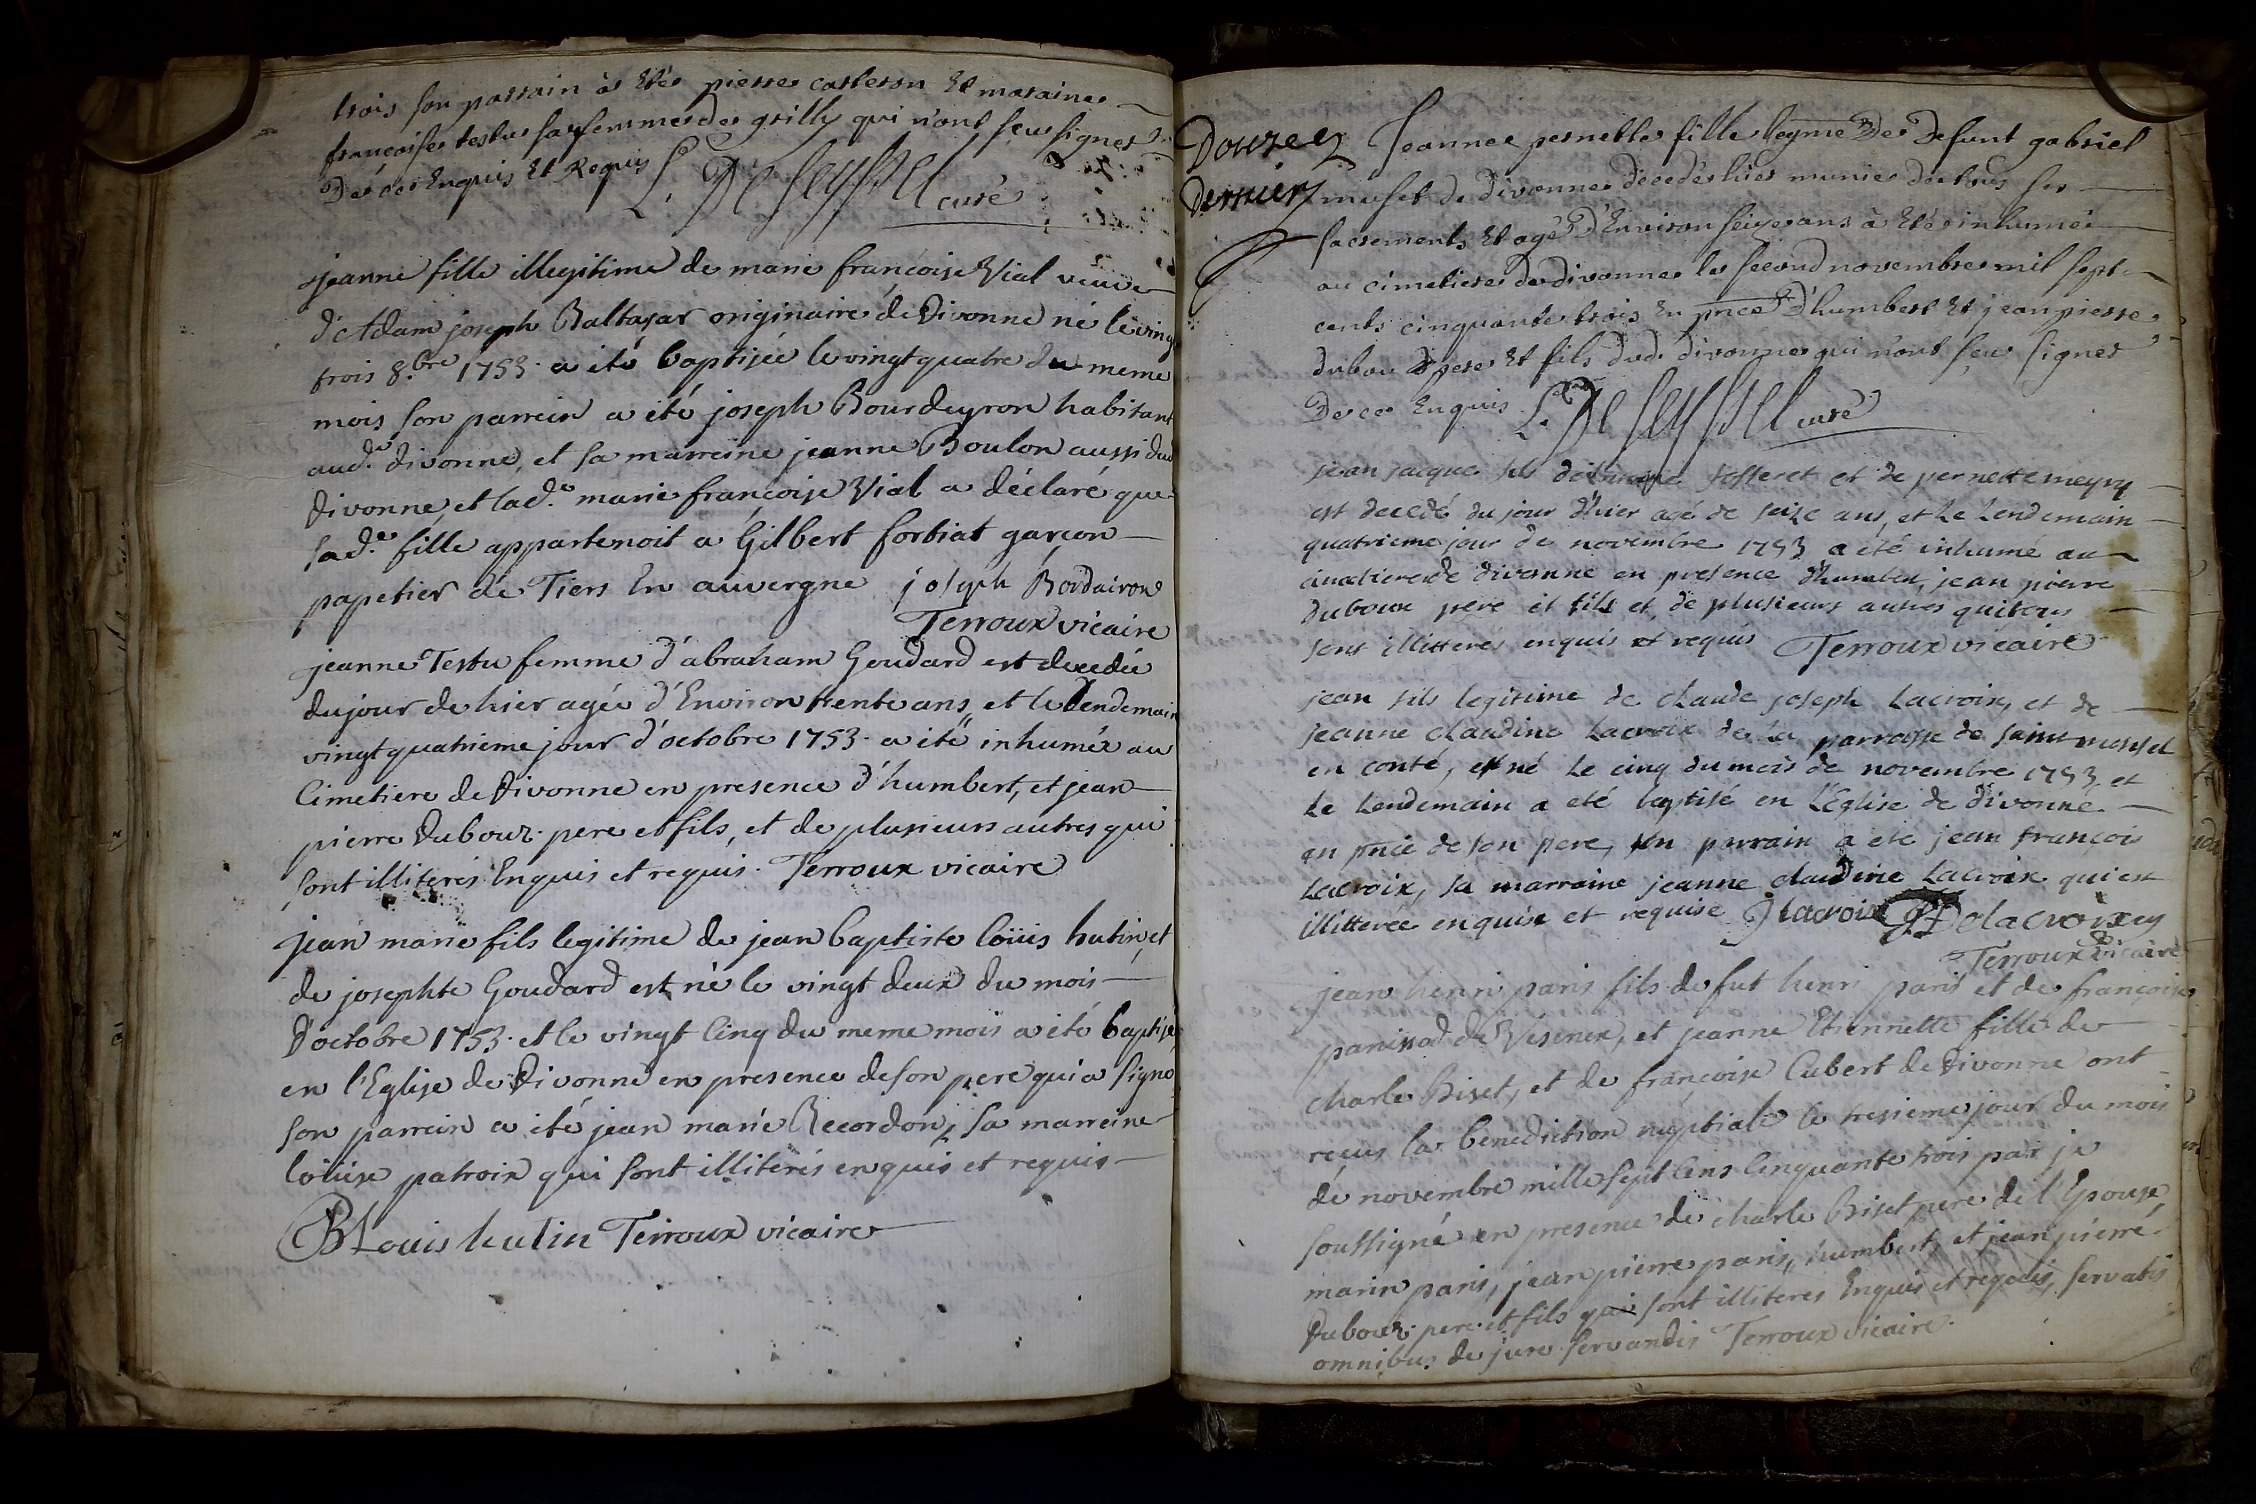 trois son parrain à Etés pierre carteron Et maraines
françoise testu sa femme de grilly qui n'ont sçeu signer
De ce Enquis Et Requis L. De seyssel curé
jeanne fille illegitime de marie françoise Vial veuve
d'Adam joseph Baltasar originaire de Divonne né le ving
trois 8.bre 1753. a été baptisée le vingt quatre du meme
mois son parrein a été joseph Bourdeyron habitant
aud.e divonne, et sa marreine jeanne Boulon aussi dud
divonne, et lad.e marie françoise Vial a déclaré que
sad.e fille appartenoit a Gilbert fortiat garçon
papetier de Tiers En auvergne joseph Bordairon
Terroux vicaire
jeanne Testu femme d'abraham Goudard est decedée
du jour de hier agée d'Environ trente ans, et le lendemain
vingt quatrieme jour d'octobre 1753. a été inhumée au
Cimetiere de Divonne en presence d'humbert, et jean
pierre Dubouz. pere et fils, et de plusieurs autres qui
sont illiterés Enquis et requis. Terroux vicaire
jean marie fils legitime de jean baptiste loüis hutin, et
de josephte Goudard est né le vingt deux du mois
d'octobre 1753. et le vingt Cinq du meme mois a été baptisé
en l'Eglise de Divonne en presence de son pere qui a signé
son parrein a été jean marie Recordon, sa marreine
loüise patroix qui sont illiterés enquis et requis
JB Louis hutin Terroux vicaire
Douzez Jeanne pernette fille legme De Defunt gabriel
Dernier muset de divonne decedés hier munie de tous ses
sacrements Et agé D'Environ seize ans à Eté inhumée
au cimetiere de divonne le second novembre mil sept
cents cinquante trois En pnce D'humbert Et jean pierre
dubou pere Et fils dud. divonne qui n'ont sçeu signer
De ce Enquis L. De seyssel curé
jean jacque fils de josseret et de pernette meyny
est decedé du jour d'hier agé de seize ans, et Le Lendemain
quatrieme jour de novembre 1753 a été inhumé au
cimetiere de divonne en presence d'humbert, jean pierre
duboux pere et fils et de plusieurs autres qui tous
sont illitterés enquis et requis Terroux vicaire
jean fils legitime de claude joseph Lacroix, et de
jeanne claudine Lacroix de la parroisse de saint
en conté, est né le cinq du mois de novembre 1753, et
Le Lendemain a eté baptisé en L'Eglise de divonne
en pnce de son pere, son parrain a eté jean françois
Lacroix, sa marraine jeanne claudine Lacroix qui est
illitterée enquise et requise J lacroix Delacroix
Terroux vicaire
jean henri paris fils de fut henri paris et de françoise
panissod de Vesenex, et jeanne Etiennette fille de
charle Biset, et de françoise Cubert de Divonne ont
reçus la benediction nuptiale le tresieme jour du mois
de novembre mille sept Cens Cinquante trois par je
soussigné en presence de charle Biset pere de l'Epouse
marin paris, jean pierre paris, humbert, et jean pierre
Dubouz. pere et fils qui sont illiteres Enquis et requis, servatis
omnibus de jure servandis Terroux vicaire.